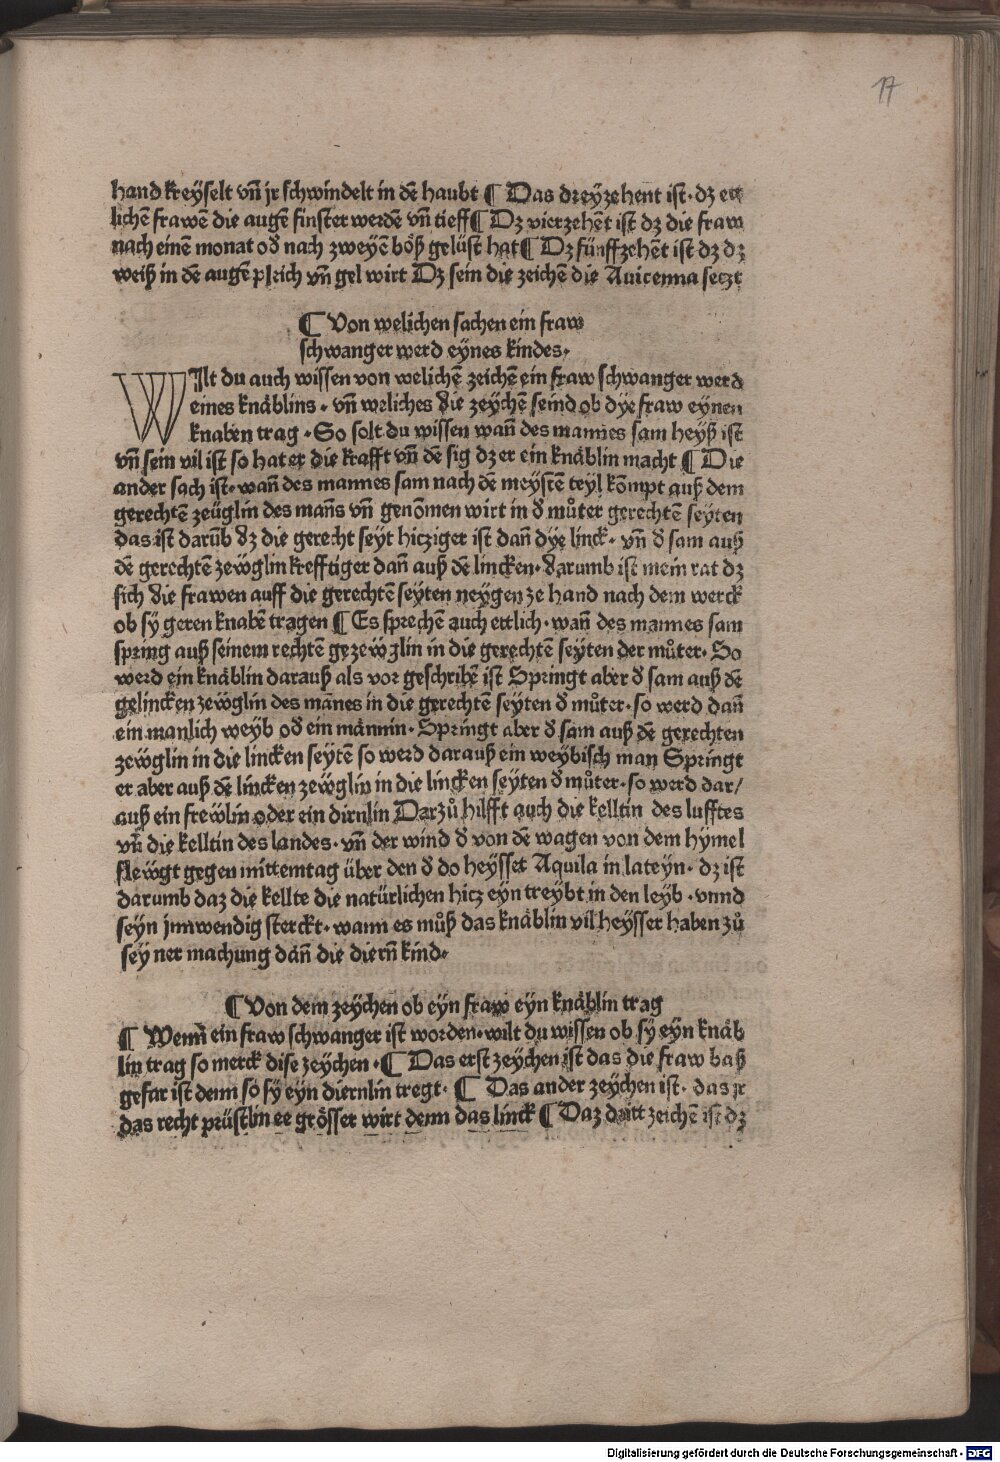 17
hand kreÿselt vñ jr schwindelt in dē haubt ¶ Das dreÿzehent ist· dz ett
lichē frawē die augē finster werdē vñ tieff ¶ Dz vierzehēt ist dz die fraw
nach einem monat oď nach zweÿē bo̊ß gelüst hat ¶ Dz fünffzehēt ist dz dz
weiß in dē augē pleich vñ gel wirt Dz sein die zeichē die Auicenna setzt
¶ Von welichen sachen ein fraw
schwanger werd eÿnes kindes·
WIlt du auch wissen von welichē zeichē ein fraw schwanger werd
eines knäblins · vñ weliches die zeÿchē seind ob dÿe fraw eÿnen
knaben trag · So solt du wissen wañ des mannes sam heÿß ist
vñ sein vil ist so hat er die krafft vñ dē sig dz er ein knäblin macht ¶ Die
ander sach ist· wañ des mannes sam nach dē meÿstē teÿl kōmpt auß dem
gerechtē zeüglin des mañs vñ genōmen wirt in ď můter gerechtē seÿten
das ist darūb dz die gerecht seÿt hicziger ist dañ dÿe linck· vñ ď sam auß
dē gerechtē zewglin krefftiger dañ auß dē lincken· darumb ist mein rat dz
sich die frawen auff die gerechtē seÿten neÿgen ze hand nach dem werck
ob sÿ geren knabē tragen ¶ Es sprechē auch ettlich· wañ des mannes sam
spring auß seinem rechtē gezewglin in die gerechtē seÿten der můter· So
werd ein knäblin darauß als vor geschribē ist Springt aber ď sam auß dē
gelincken zewglin des mānes in die gerechtē seÿten ď můter· so werd dañ
ein manlich weÿb oď ein männin· Springt aber ď sam auß dē gerechten
zewglin in die lincken seÿtē so werd darauß ein weÿbisch man Springt
er aber auß dē lincken zewglin in die lincken seÿten ď můter· so werd dar/
auß ein frewlin oder ein dirnlin Darzů hilfft auch die kelltin des lufftes
vñ die kelltin des landes· vñ der wind ď von dē wagen von dem hÿmel
flewgt gegen mittemtag über den ď do heÿsset Aquila in lateÿn· dz ist
darumb daz die kellte die natürlichen hicz eÿn treÿbt in den leÿb · vnnd
seÿn jnnwendig sterckt· wann es můß das knäblin vil heÿsser haben zů
seÿner machung dañ die dierñ kind·
¶ Von dem zeÿchen ob eÿn fraw eÿn knäblin trag
¶ Wenñ ein fraw schwanger ist worden· wilt du wissen ob sÿ eÿn knäb
lin trag so merck dise zeÿchen · ¶ Das erst zeÿchen ist das die fraw baß
gefar ist denn so sÿ eÿn diernlin tregt· ¶ Das ander zeÿchen ist· das jr
das recht prüstlin ee grösser wirt denn das linck ¶ Daz dritt zeichē ist dz
Digitalisierung gefördert durch die Deutsche Forschungsgemeinschaft - DFG